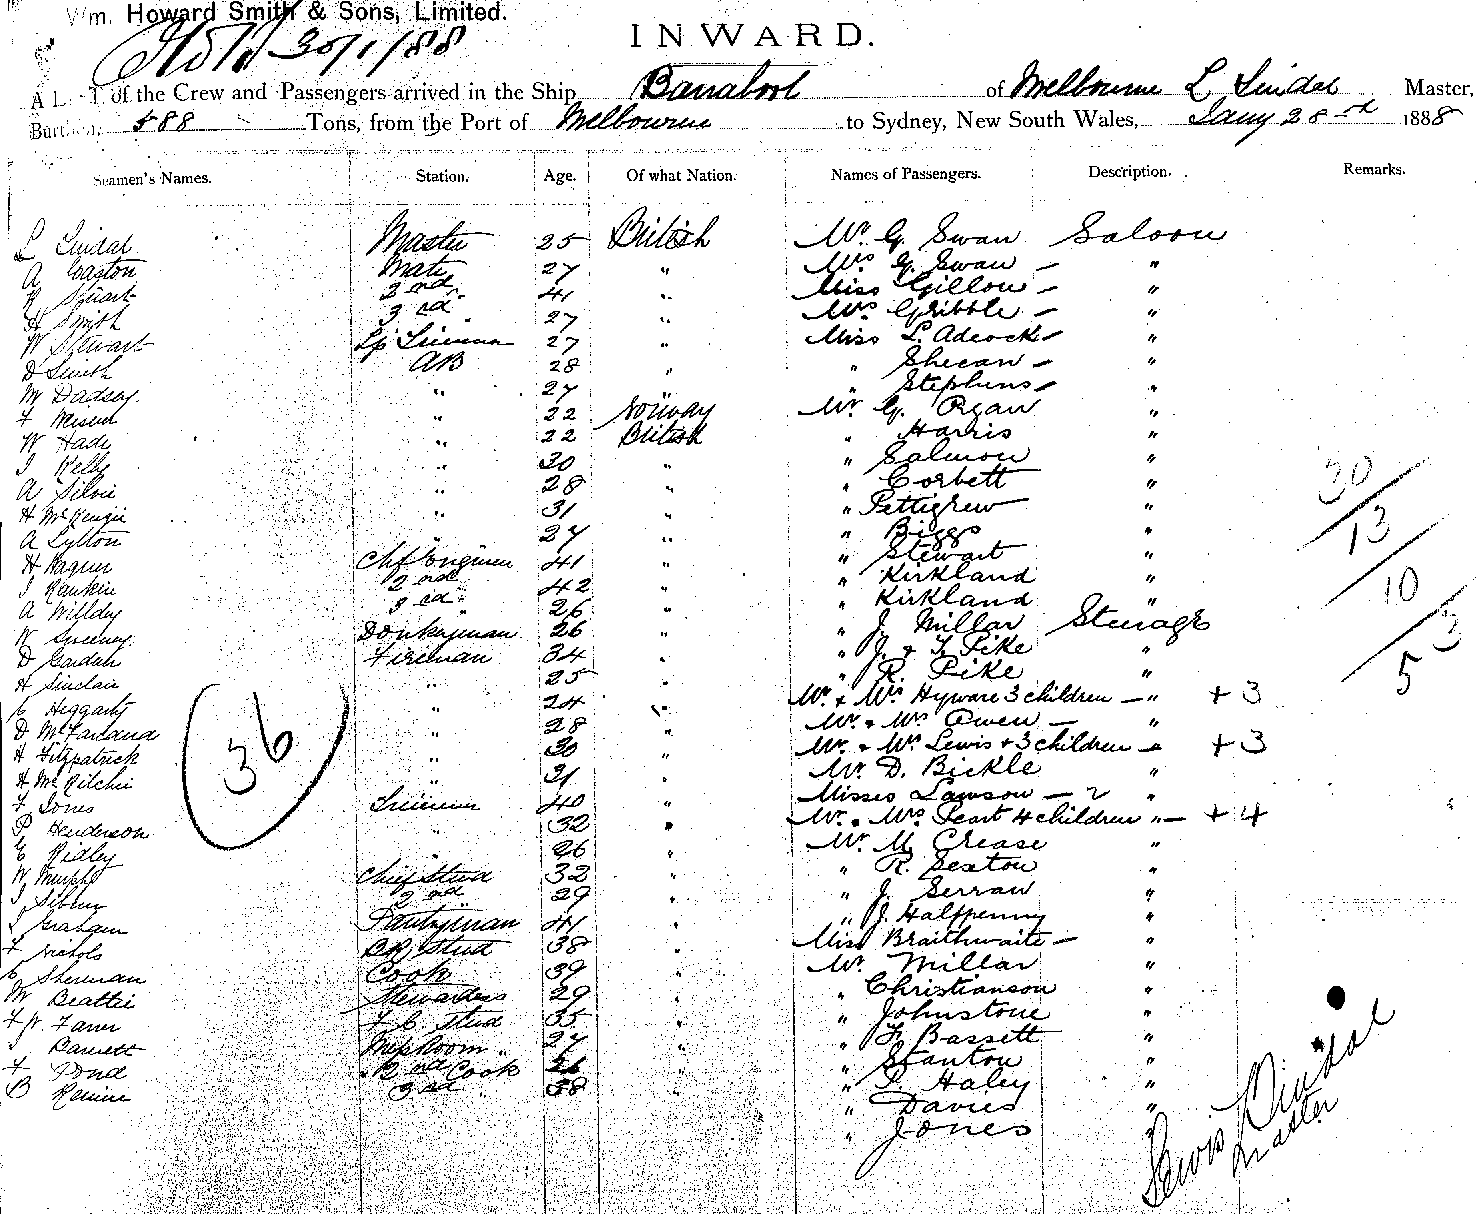 Wm. Howard Smith & Sons, Limited.
30/1/88
INWARD.
A LIST of the Crew and Passengers arrived in the Ship Barrabool of Melbourne L Lindal Master,
Burthen 588 Tons, from the Port of Melbourne to Sydney, New South Wales, Jany 28 1888
Seamen's Names. Station. Age. Of what Nation. Names of Passengers. Description. Remarks.
L Lindal Master 25 British Mr. G. Swan Saloon
A Easton Mate 27 " Mrs G. Swan — "
R Stuart 2nd 41 " Miss Gillow — "
H Smith 3rd 27 " Mrs Gribble — "
W Stewart 27 " Miss L. Adcock — "
D Smith AB 28 " " Sheean — "
M Dadsey " 27 " " Stephens — "
F " 22 Norway Mr. G. Ryan "
W Hade " 22 British " Harris "
J Kelly " 30 " " Salmon "
A Silvie " 28 " " Corbett "
H McKenzie " 31 " " Pettigrew "
A Lytton " 27 " " Biggs "
H Wagner Chf Engineer 41 " " Stewart "
J Rankin 2nd " 42 " " Kirkland "
A Willdey 3rd " 26 " " Kirkland "
W Sweeney Donkeyman 26 " " J. Millar Steerage
D Fireman 34 " " J. & F. Pike "
H Sinclair " 25 " " R. Pike "
C Heggarty " 24 " Mr. & Mrs. Hyware 3 children — " + 3
D McFarland " 28 " Mr. & Mrs Owen — "
H Fitzpatrick " 30 " Mr. & Mrs Lewis + 3 children — " + 3
H McRitchie " 31 " Mr. D. Bickle "
F Jones 40 " Misses Lawson — 2 "
P Henderson " 32 " Mr. & Mrs Peart 4 children " — + 4
E Ridley " 26 " Mr. M. Crease "
W Murphy Chief Stud 32 " " R. Sexton "
J 2nd " 29 " " J. Serraw "
L Graham Pantryman 41 " " J. Halfpenny "
F Nichols Stud 38 " Miss Braithwaite — "
C Sherman Cook 39 " Mr. Millar "
M Beattie Stewardess 29 " " Christianson "
F. C. Stud 35 " " Johnstone "
Barrett Mess Room " 27 " " F. Bassett "
F Pond 2nd Cook 26 " " Stanton "
B 3rd " 38 " " Haley "
" Davies "
" Jones "
30
13
10
5
36
Lewis Lindal
Master